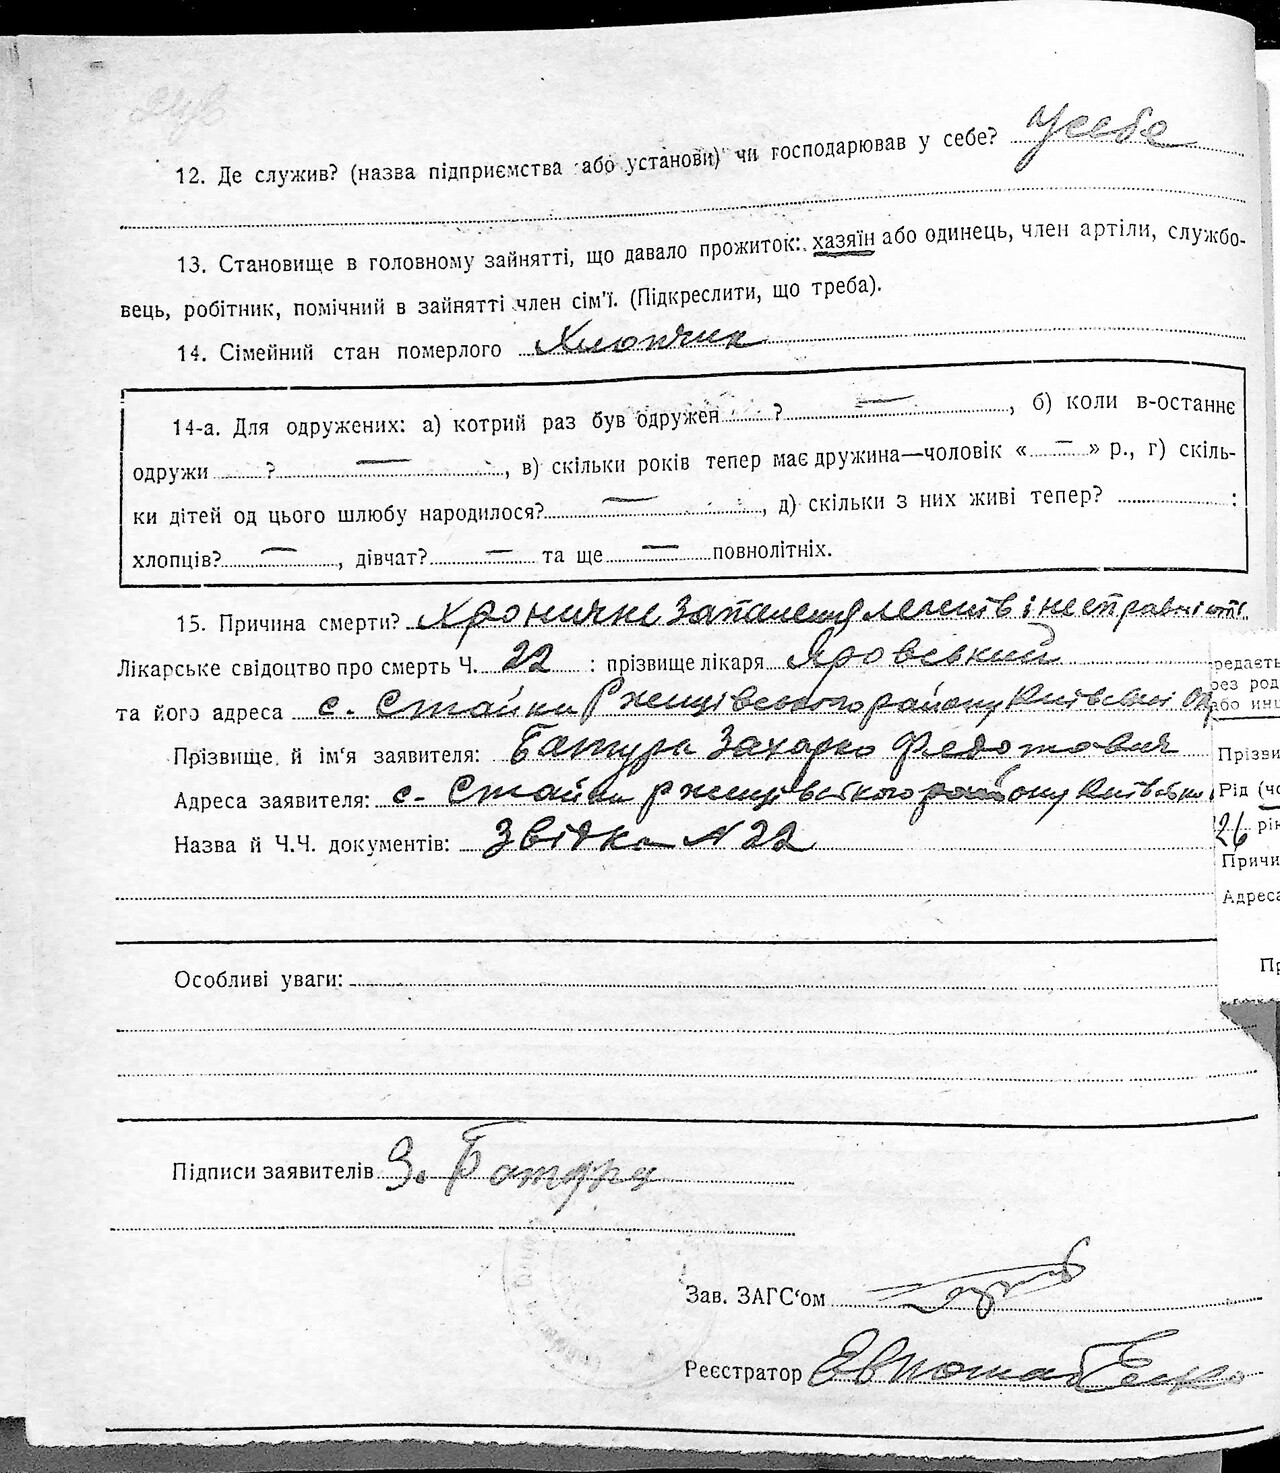 12. Де служив? (назва підприємства або установи) чи господарював у себе? У себе
13. Становище в головному зайнятті, що давало прожиток: хазяїн або одинець, член артіли, службо-
вець, робітник, помічний в зайнятті член сім'ї. (Підкреслити, що треба).
14. Сімейний стан померлого Хлопчик
14-а. Для одружених: а) котрий раз був одружен ? —, б) коли в-останнє
одружи ? —, в) скільки років тепер має дружина—чоловік « — » р., г) скіль-
ки дітей од цього шлюбу народилося? —, д) скільки з них живі тепер? :
хлопців? —, дівчат? — та ще — повнолітніх.
15. Причина смерти? Хроничне запалення легенів і
Лікарське свідоцтво про смерть Ч. 22 : прізвище лікаря Яровський
та його адреса с. Стайки Ржищівського району Київської
Прізвище й ім'я заявителя: Батура Захарко Федотович
Адреса заявителя: с. Стайки Ржищівського району Київсько
Назва й Ч.Ч. документів: Звідка N 22
Особливі уваги:
Підписи заявителів З. Батура
Зав. ЗАГС'ом
Реєстратор
редаєть
рез род
або инш
Прізви
Рід (чо
26 рік
Причи
Адреса
Пр